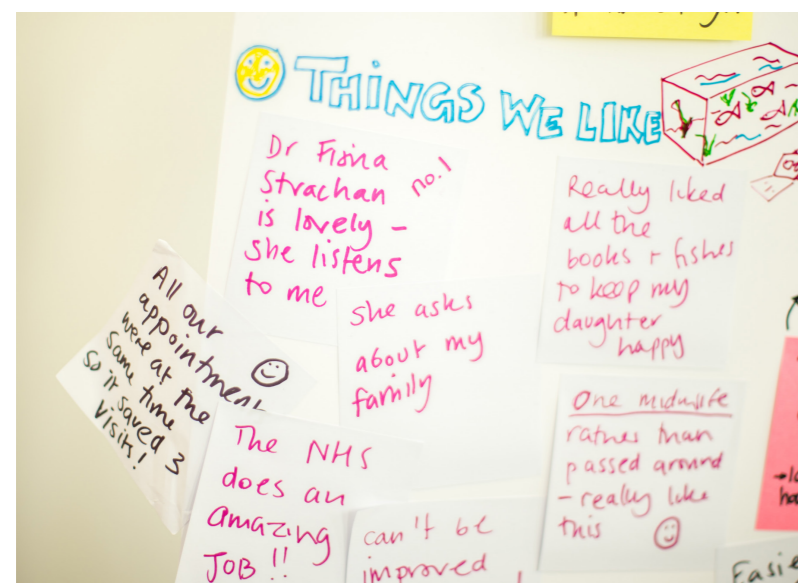 THINGS WE LIKE
Dr Fiona
Strachan
no.1
is lovely -
she listens
to me
she asks
about my
family
Really liked
all the
books + fishes
to keep my
daughter
happy
All our
appointments
were at the
same time
so it saved 3
visits!
The NHS
does an
amazing
JOB !!
can't be
improved
One midwife
rather than
passed around
- really like
this
Easie